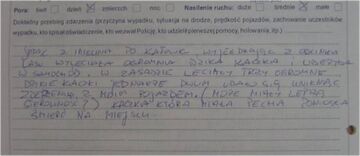 Pora: świt dzień zmierzch noc Nasilenie ruchu: duże średnie małe
Dokładny przebieg zdarzenia (przyczyna wypadku, sytuacja na drodze, prędkość pojazdów, zachowanie uczestników
wypadku, kto spisał oświadczenie, kto wezwał Policję, kto udzielił pierwszej pomocy, holowania, itp.)
JADĄC Z IMIELINA PO KAJTOWE WYJEŻDŻAJĄC Z ODCINKA
LAW WYLECIAŁA OGROMNA DZIKA KACZKA I UDERZYŁA
W SAMOCHÓD. W ZASADZIE LECIAŁY TRZY OGROMNE
DZIKIE KACZKI JEDNAKŻE DWOM UDAŁO SIĘ UNIKNĄĆ
ZDERZENIA Z MOIM POJAZDEM. (MOŻE MIAŁY LEPSZĄ
) KACZKA KTÓRA MIAŁA PECHA PONIOSŁA
ŚMIERĆ NA MIEJSCU